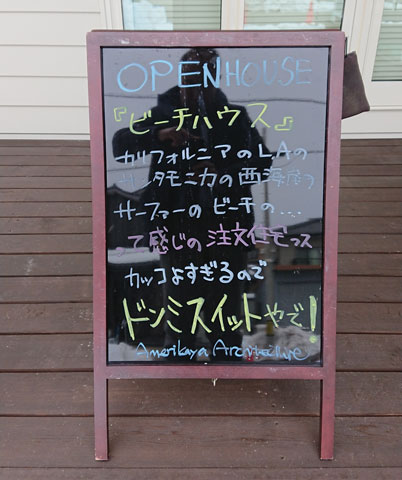 OPENHOUSE
『ビーチハウス』
カリフォルニアのLAの
サンタモニカの西海岸っ
サーファーのビーチの...
って感じの注文住宅っス
カッコよすぎるので
ドンミスイットやで!
Amerikaya Architecture